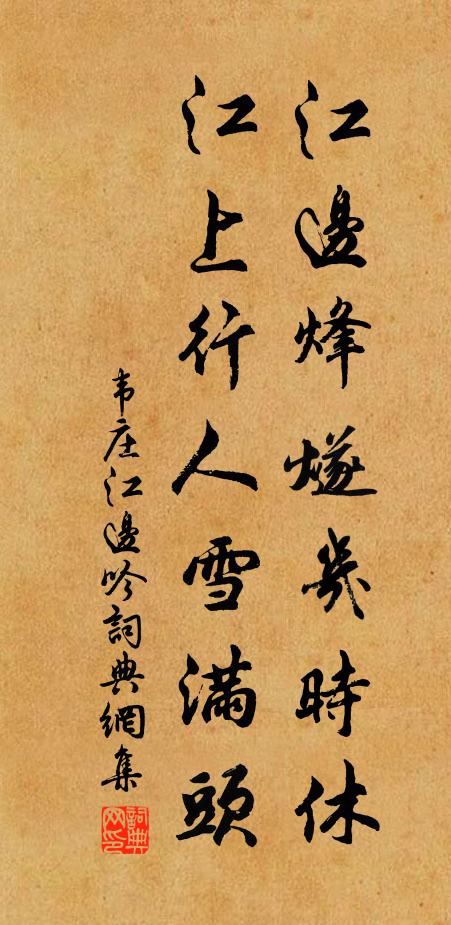 江邊烽燧幾時休
江上行人雪滿頭
韦庄江邊吟詞典網集
詞典网印